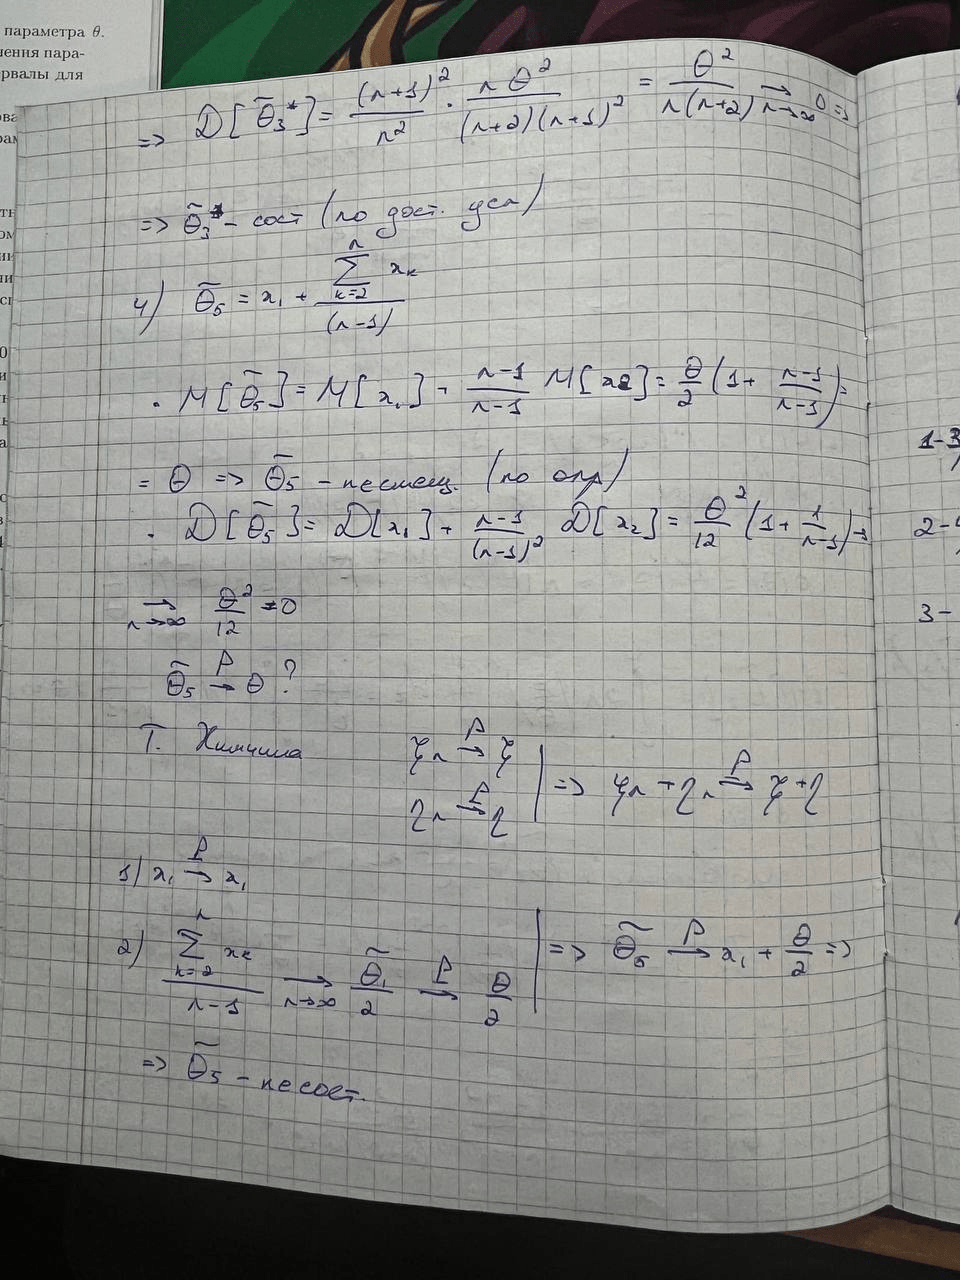 параметра θ.
⇒ D[θ̃₃*] = (n+1)²/n² · nθ²/((n+2)(n+1)²) = θ²/(n(n+2)) →_{n→∞} 0 ⇒
⇒ θ̃₃* – сост (по дост. усл)
4) θ̃₅ = x₁ + (∑_{k=2}^{n} xₖ)/(n-1)
· M[θ̃₅] = M[x₁] + (n-1)/(n-1) M[x₂] = θ/2 (1 + (n-1)/(n-1)) =
= θ ⇒ θ̃₅ – несмещ. (по опр)
· D[θ̃₅] = D[x₁] + (n-1)/(n-1)² D[x₂] = θ²/12 (1 + 1/(n-1)) →
→_{n→∞} θ²/12 ≠ 0
θ̃₅ →^P θ ?
Т. Хинчина ξₙ →^P ξ
ηₙ →^P η | ⇒ ξₙ + ηₙ →^P ξ + η
1) x₁ →^P x₁
2) (∑_{k=2}^{n} xₖ)/(n-1) →_{n→∞} θ̃₁/2 →^P θ/2 | ⇒ θ̃₅ →^P x₁ + θ/2 ⇒
⇒ θ̃₅ – не сост.
1-3
2-
3-